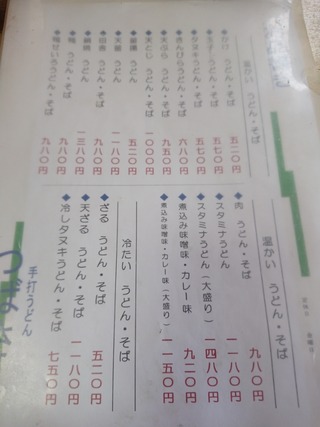 温かい うどん・そば
◆かけ うどん・そば 五二〇円
◆玉子とじうどん・そば 五七〇円
◆タヌキうどん・そば 五七〇円
◆きんぴらうどん・そば 六八〇円
◆天ぷら うどん・そば 九五〇円
◆天とじ うどん・そば 一〇〇〇円
うどん 五二〇円
◆天釜 うどん 一一八〇円
うどん・そば 九八〇円
◆鍋焼 うどん 一三八〇円
◆鴨 うどん・そば 九八〇円
◆鴨せいろうどん・そば 九八〇円
温かい うどん・そば
◆肉 うどん・そば 九八〇円
◆スタミナうどん 一一八〇円
◆スタミナうどん(大盛り) 一四八〇円
◆煮込み味噌味・カレー味 九二〇円
◆煮込み味噌味・カレー味(大盛り) 一一五〇円
冷たい うどん・そば
◆ざる うどん・そば 五二〇円
◆天ざる うどん・そば 一一八〇円
◆冷しタヌキうどん・そば 七五〇円
手打うどん